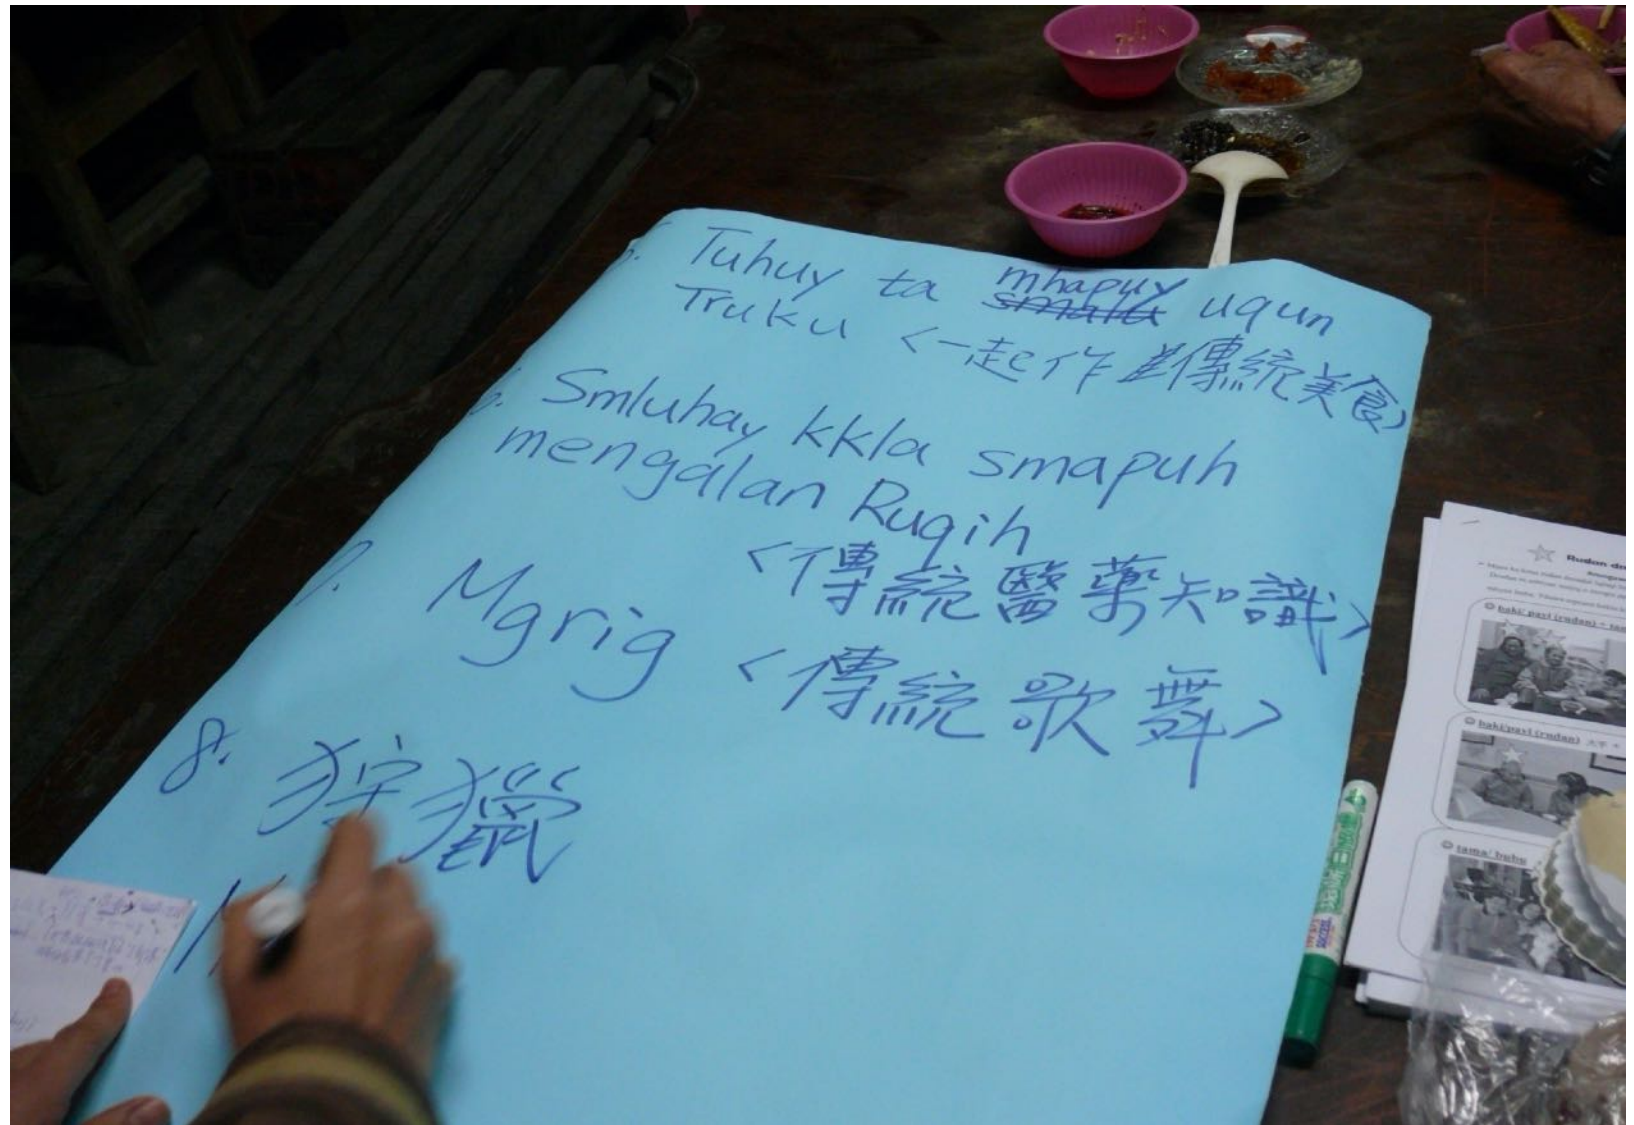 5. Tuhuy ta mhapuy uqun
Truku <一起作傳統美食>
6. Smluhay kkla smapuh
mengalan Ruqih
<傳統醫藥知識>
7. Mgrig <傳統歌舞>
8. 狩獵
Rudan
baki/payi (rudan)
baki/payi (rudan)
tama/bubu
SUCCESS